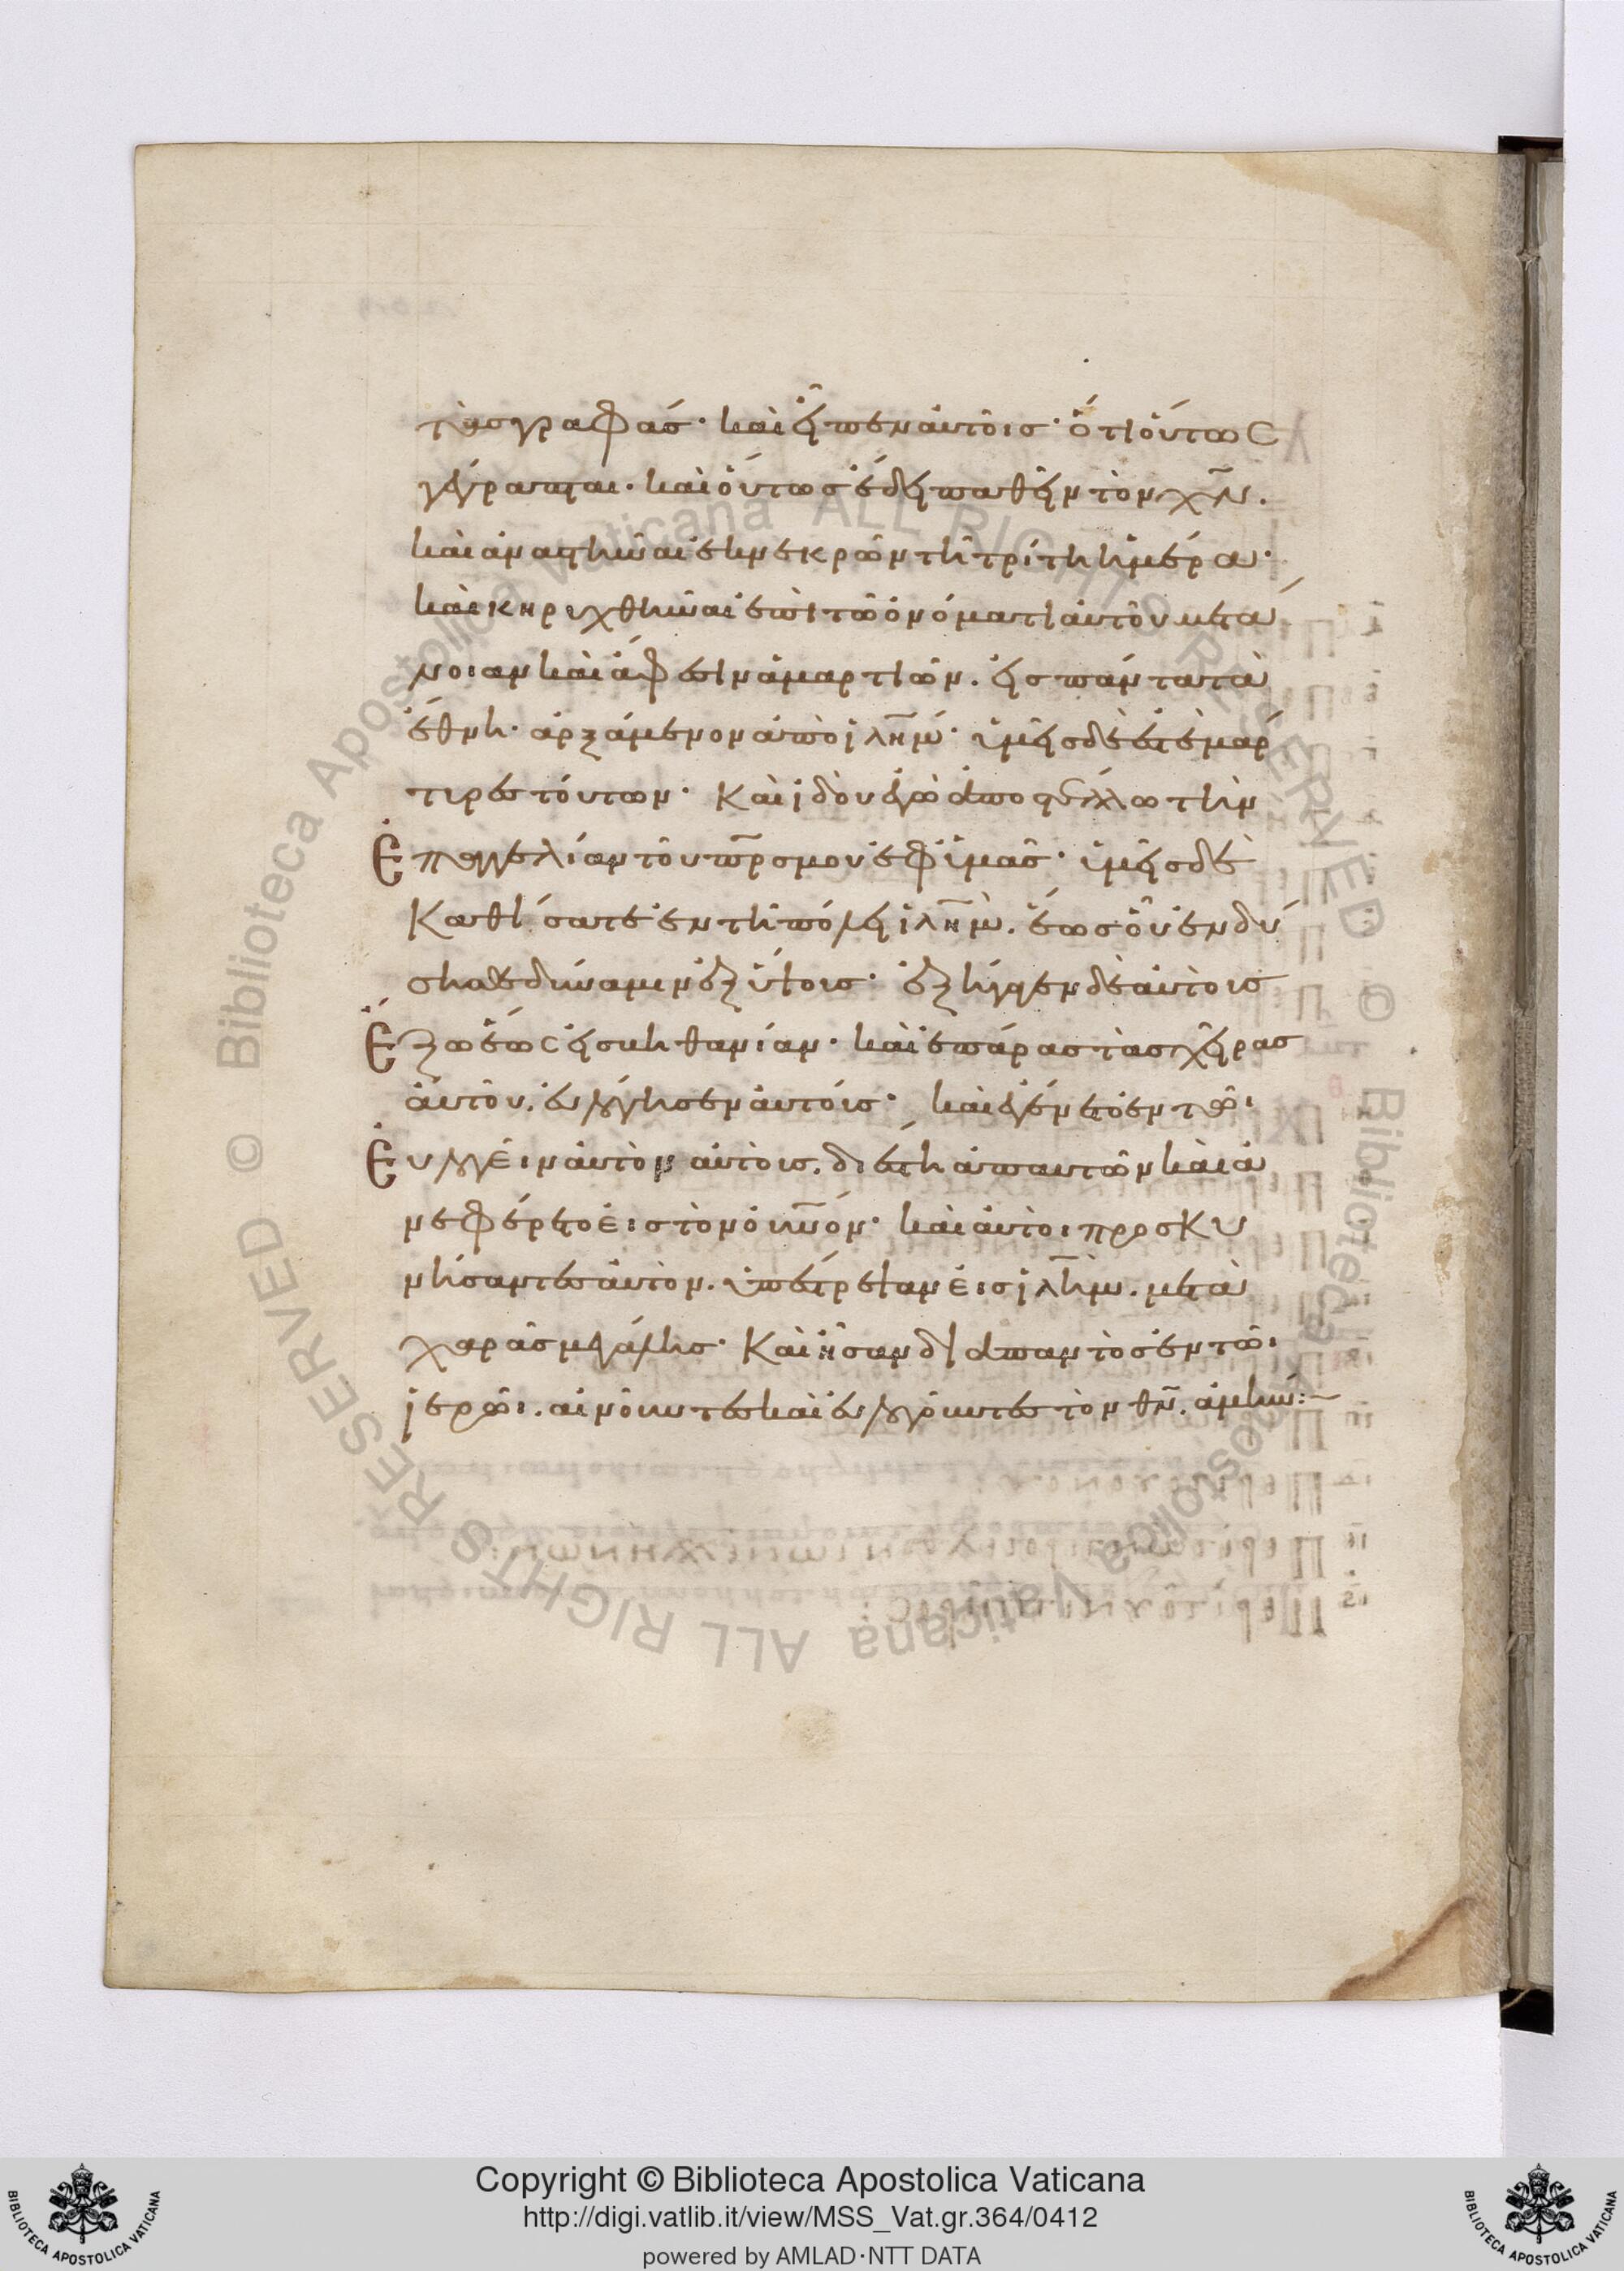 τὰς γραφάς· καὶ εἶπεν αὐτοῖς· ὅτι οὕτως
γέγραπται· καὶ οὕτως ἔδει παθεῖν τὸν χ̅ν̅.
καὶ ἀναστῆναι ἐκ νεκρῶν τῆ τρίτη ἡμέρα·
καὶ κηρυχθῆναι ἐπὶ τῶ ὀνόματι αὐτοῦ μετά
νοιαν καὶ ἄφεσιν ἁμαρτιῶν. εἰς πάντα τὰ
ἔθνη· ἀρξάμενον ἀπὸ ἰλ̅η̅μ· ὑμεῖς δὲ ἐστὲ μάρ
τυρες τούτων· Καὶ ἰδοὺ ἐγὼ ἀποστέλλω τὴν
Ἐπαγγελίαν τοῦ π̅ρ̅ς μου ἐφ ὑμᾶς· ὑμεῖς δὲ
Καθίσατε ἐν τῆ πόλει ἰλ̅η̅μ. ἕως οὗ ἐνδύ
σησθε δύναμιν ἐξ ὕψους· ἐξήγαγεν δὲ αὐτοὺς
Ἔξω ἕως εἰς βηθανίαν· καὶ ἐπάρας τὰς χεῖρας
αὐτοῦ. εὐλόγησεν αὐτούς· καὶ ἐγένετο ἐν τῶι
Εὐλογεῖν αὐτὸν αὐτοὺς. διέστη ἀπ αυτῶν καὶ ἀ
νεφέρετο εἰς τὸν οὐ̅ν̅όν· καὶ αὐτοὶ προσκυ
νήσαντες αὐτὸν. ὑπέστρεψαν εἰς ἰλ̅η̅μ. μετὰ
χαρᾶς μεγάλης· Καὶ ἦσαν διαπαντὸς ἐν τῶι
ἱερῶι. αἰνοῦντες καὶ εὐλογοῦντες τὸν θ̅ν̅. ἀμήν:~
ALL RIGHTS RESERVED © Biblioteca Apostolica Vaticana ALL RIGHTS RESERVED © Biblioteca Apostolica Vaticana
Copyright © Biblioteca Apostolica Vaticana
http://digi.vatlib.it/view/MSS_Vat.gr.364/0412
powered by AMLAD·NTT DATA
BIBLIOTECA APOSTOLICA VATICANA
BIBLIOTECA APOSTOLICA VATICANA